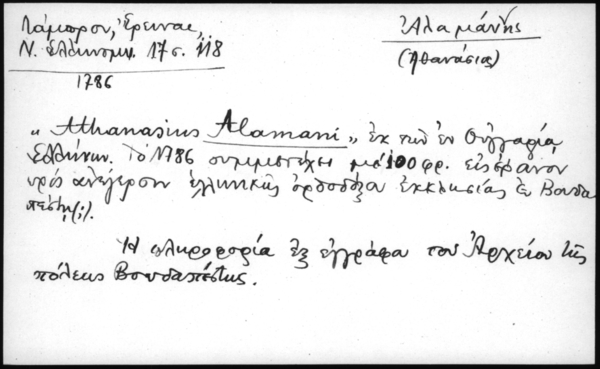 Λάμπρου, Ἔρευναι,
Ν. Ἑλληνομν. 17 σ. 118
1786
Ἀλαμάνης
(Ἀθανάσιος)
"Athanasius Alamani", ἐκ τῶν ἐν Οὑγγαρίᾳ
Ἑλλήνων. Τὸ 1786 συμμετέχει μὲ 100 φρ. εἰς ἔρανον
πρὸς ἀνέγερσιν ἑλληνικῆς ὀρθοδόξου ἐκκλησίας ἐν Βουδα
πέστῃ (;).
Ἡ πληροφορία ἐξ ἐγγράφου τοῦ Ἀρχείου τῆς
πόλεως Βουδαπέστης.